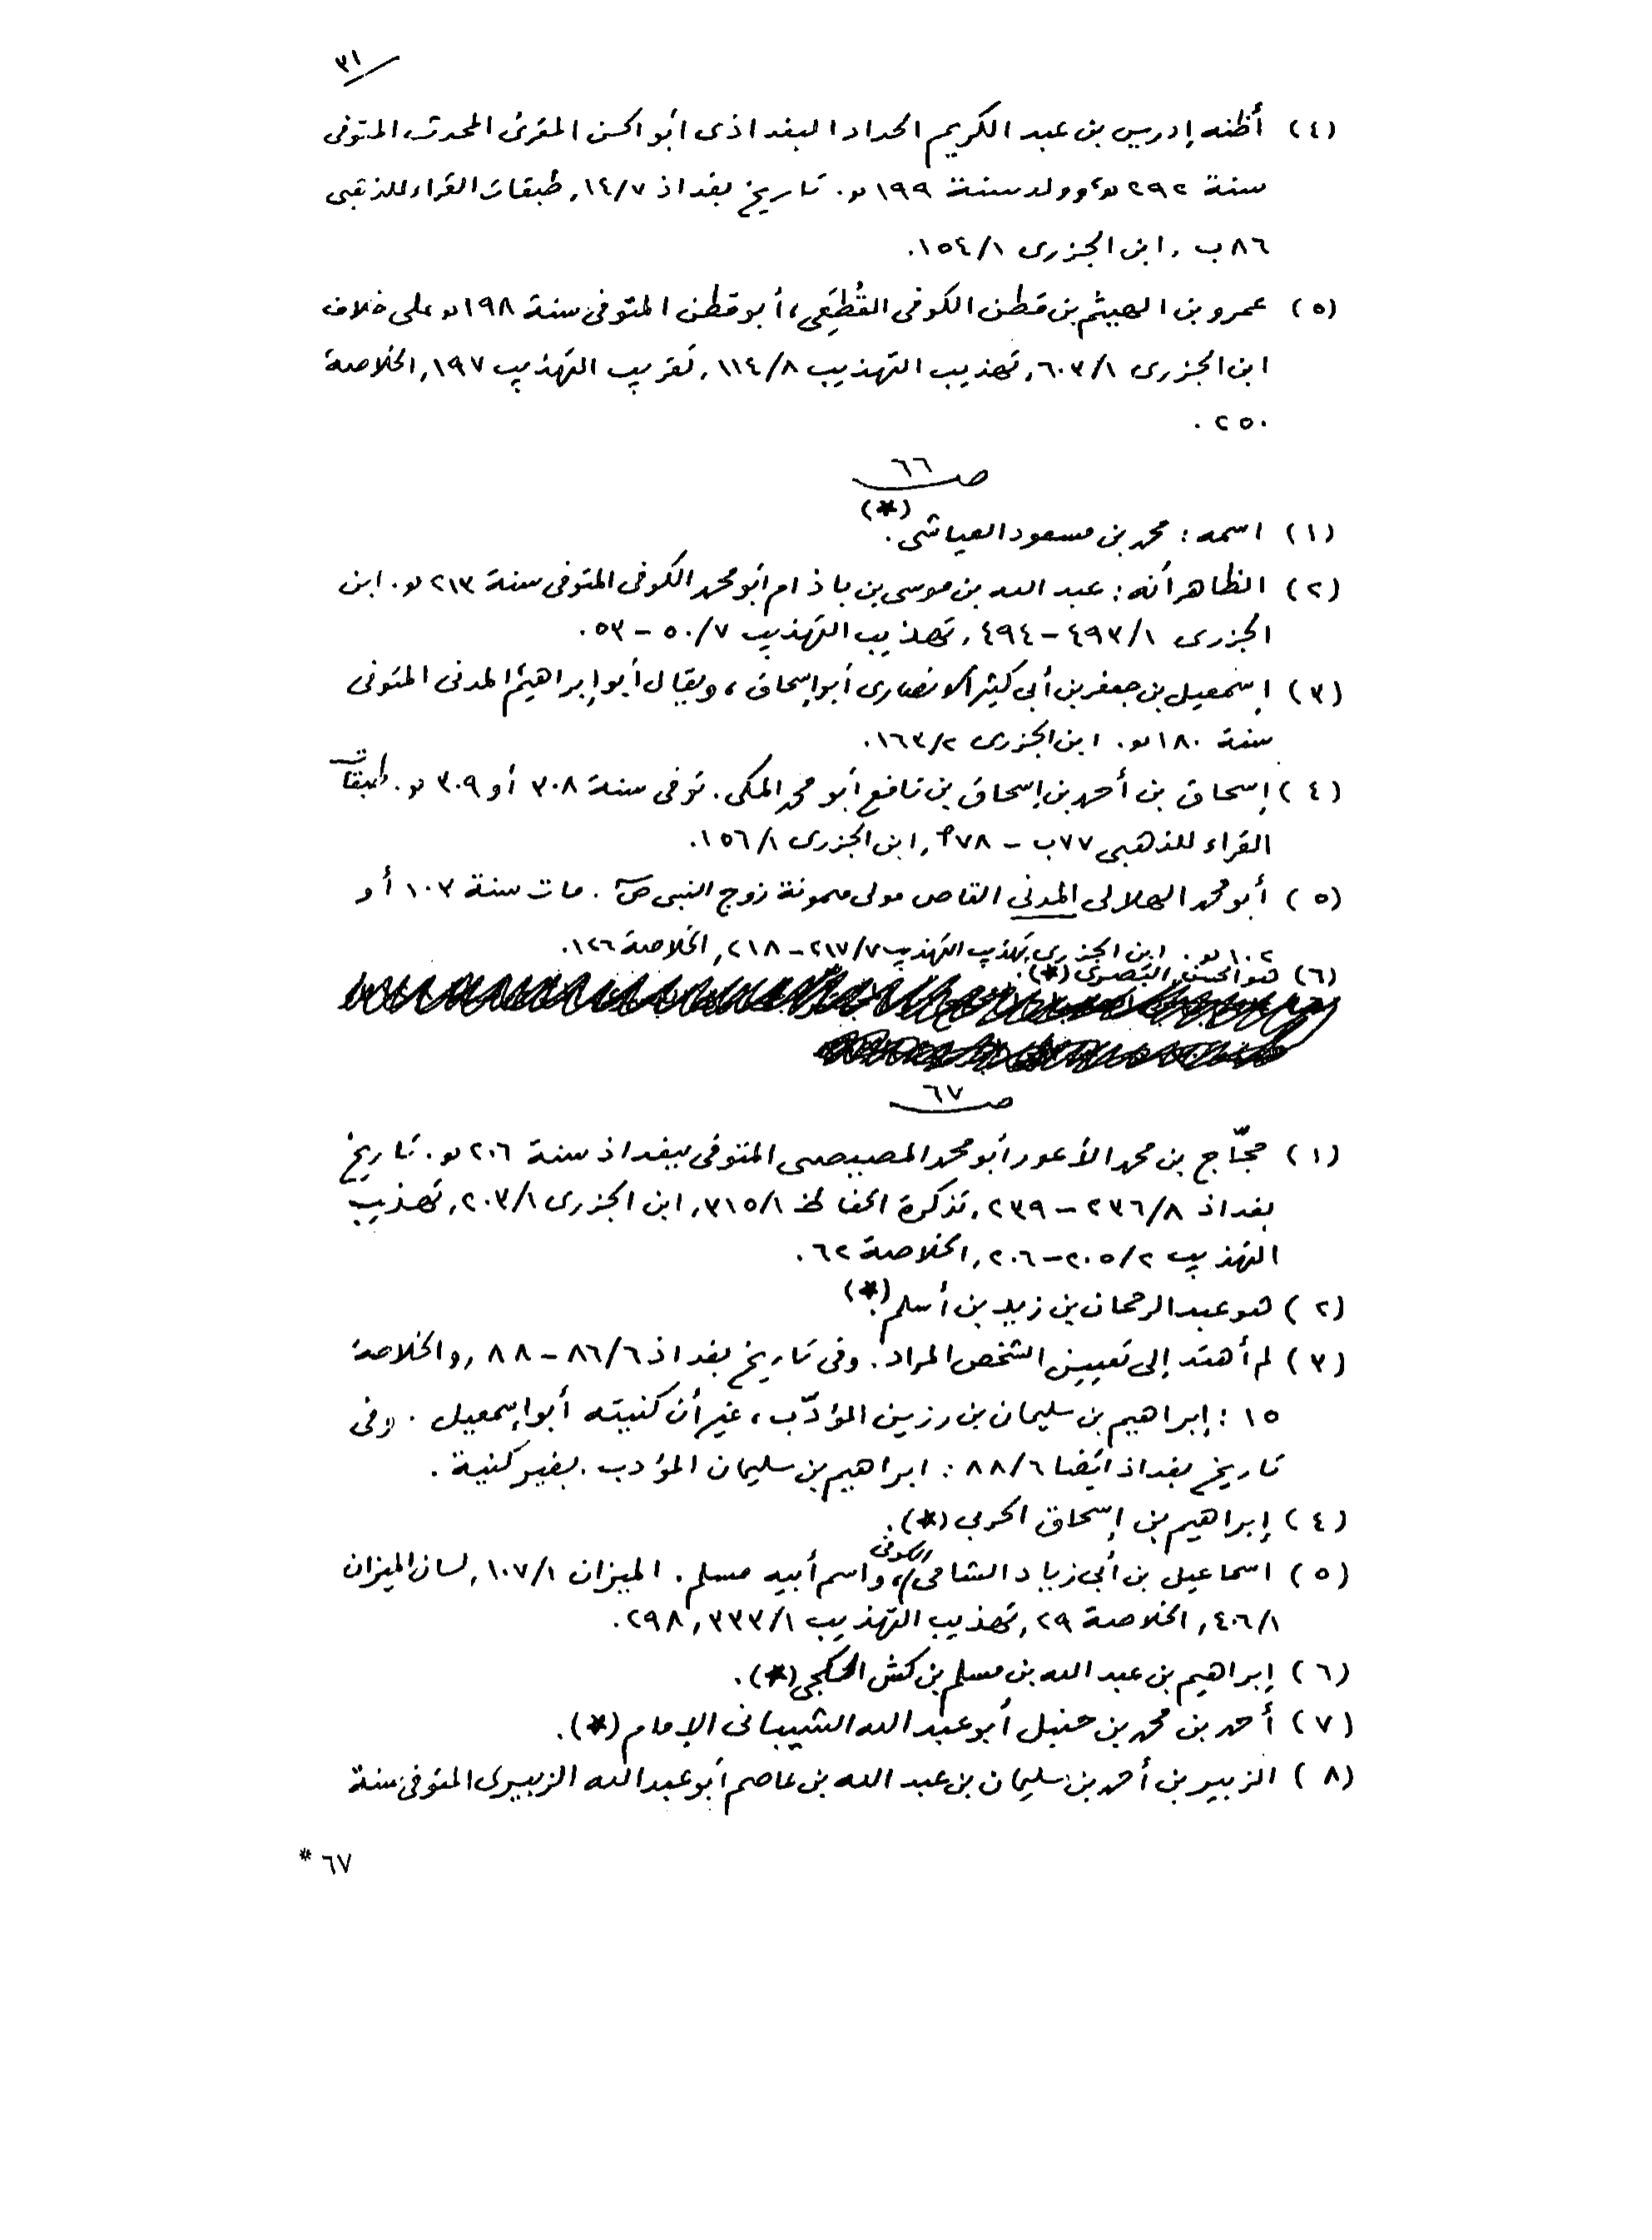 ٣١
(٤) أظنه إدريس بن عبد الكريم الحداد البغداذى أبو الحسن المقرئ المحدث المتوفى
سنة ٢٩٢ هـ، وولد سنة ١٩٩ هـ. تاريخ بغداذ ١٤/٧, طبقات القراء للذهبى
٨٦ ب , ابن الجزرى ١٥٤/١.
(٥) عمرو بن الهيثم بن قطن الكوفى القُطَعِى، أبو قطن المتوفى سنة ١٩٨ هـ على خلاف
ابن الجزرى ٦٠٣/١, تهذيب التهذيب ١١٤/٨, تقريب التهذيب ١٩٧, الخلاصة
٢٥٠ .
صـ ٦٦
(١) اسمه : محمد بن مسعود العياشى (*).
(٢) الظاهر أنه : عبد الله بن موسى بن باذام أبو محمد الكوفى المتوفى سنة ٢١٣ هـ. ابن
الجزرى ٤٩٣/١ – ٤٩٤, تهذيب التهذيب ٥٠/٧ – ٥٣.
(٣) إسمعيل بن جعفر بن أبى كثير الانصارى أبو إسحاق، ويقال أبو إبراهيم المدنى المتوفى
سنة ١٨٠ هـ. ابن الجزرى ١٦٣/٢.
(٤) إسحاق بن أحمد بن إسحاق بن نافع أبو محمد المكى. توفى سنة ٣٠٨ أو ٣٠٩ هـ. طبقات
القراء للذهبى ٧٧ب – ٧٨أ, ابن الجزرى ١٥٦/١.
(٥) أبو محمد الهلالى المدنى القاص مولى ميمونة زوج النبى ص . مات سنة ١٠٣ أو
١٠٢ هـ. ابن الجزرى, تهذيب التهذيب ٢١٧/٧ – ٢١٨, الخلاصة ١٢٦.
(٦) هو الحسن البصرى (*).
صـ ٦٧
(١) حجّاج بن محمد الأعور أبو محمد المصيصى المتوفى ببغداذ سنة ٢٠٦ هـ. تاريخ
بغداذ ٢٣٦/٨ – ٢٣٩, تذكرة الحفاظ ٣١٥/١, ابن الجزرى ٢٠٣/١, تهذيب
التهذيب ٢٠٥/٢ – ٢٠٦, الخلاصة ٦٢.
(٢) هو عبد الرحمان بن زيد بن أسلم (*).
(٣) لم أهتد إلى تعيين الشخص المراد. وفى تاريخ بغداذ ٨٦/٦ – ٨٨, والخلاصة
١٥ : إبراهيم بن سليمان بن رزين المؤدّب، غير أن كنيته أبو إسمعيل . وفى
تاريخ بغداذ أيضا ٨٨/٦ : ابراهيم بن سليمان المؤدب. بغير كنية .
(٤) إبراهيم بن إسحاق الحربى (*).
(٥) اسماعيل بن أبى زياد الشامى الكوفى، واسم أبيه مسلم. الميزان ١٠٧/١, لسان الميزان
٤٠٦/١, الخلاصة ٢٩, تهذيب التهذيب ٣٣٣/١, ٢٩٨.
(٦) إبراهيم بن عبد الله بن مسلم بن كش الكجى (*).
(٧) أحمد بن محمد بن حنبل أبو عبد الله الشيبانى الإمام (*).
(٨) الزبير بن أحمد بن سليمان بن عبد الله بن عاصم أبو عبد الله الزبيرى المتوفى سنة
٦٧ *